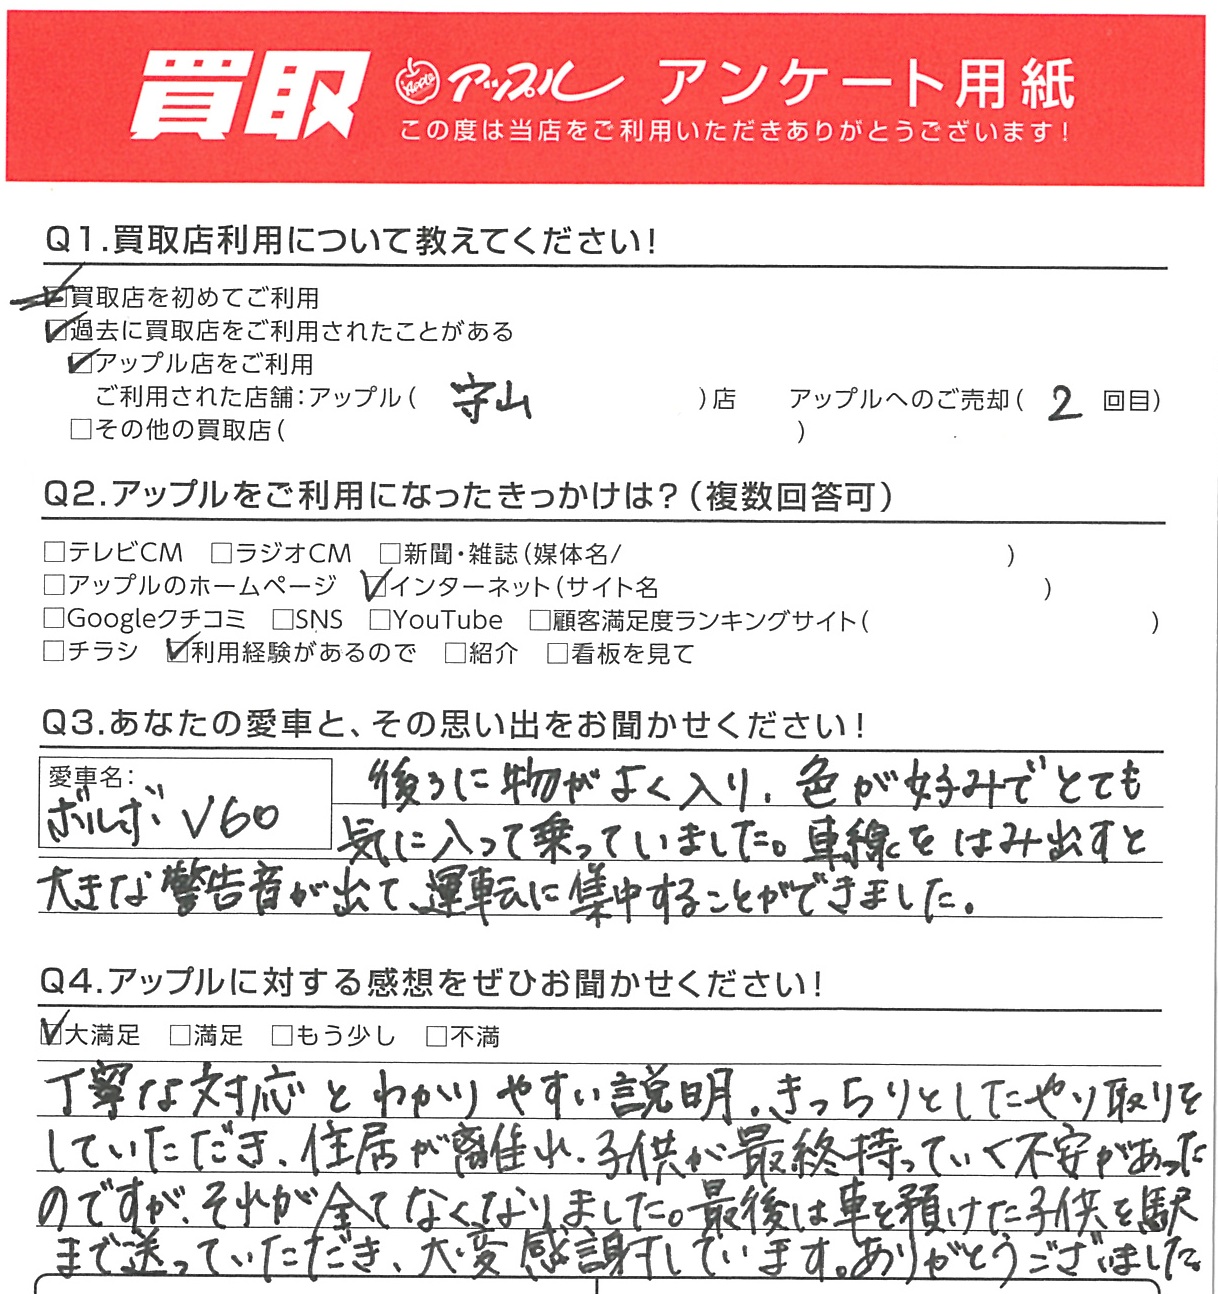 買取 Apple アップル アンケート用紙
この度は当店をご利用いただきありがとうございます!
Q1.買取店利用について教えてください!
□買取店を初めてご利用
☑過去に買取店をご利用されたことがある
☑アップル店をご利用
ご利用された店舗:アップル( 守山 )店 アップルへのご売却( 2 回目)
□その他の買取店( )
Q2.アップルをご利用になったきっかけは?(複数回答可)
□テレビCM □ラジオCM □新聞・雑誌(媒体名/ )
□アップルのホームページ ☑インターネット(サイト名 )
□Googleクチコミ □SNS □YouTube □顧客満足度ランキングサイト( )
□チラシ ☑利用経験があるので □紹介 □看板を見て
Q3.あなたの愛車と、その思い出をお聞かせください!
愛車名:
ボルボ V60
後ろに物がよく入り、色が好みでとても
気に入って乗っていました。車線をはみ出すと
大きな警告音が出て、運転に集中することができました。
Q4.アップルに対する感想をぜひお聞かせください!
☑大満足 □満足 □もう少し □不満
丁寧な対応とわかりやすい説明、きっちりとしたやり取りを
していただき、住居が離れ、子供が最終持っていく不安があった
のですが、それが全てなくなりました。最後は車を預けた子供を駅
まで送っていただき、大変感謝しています。ありがとうございました。